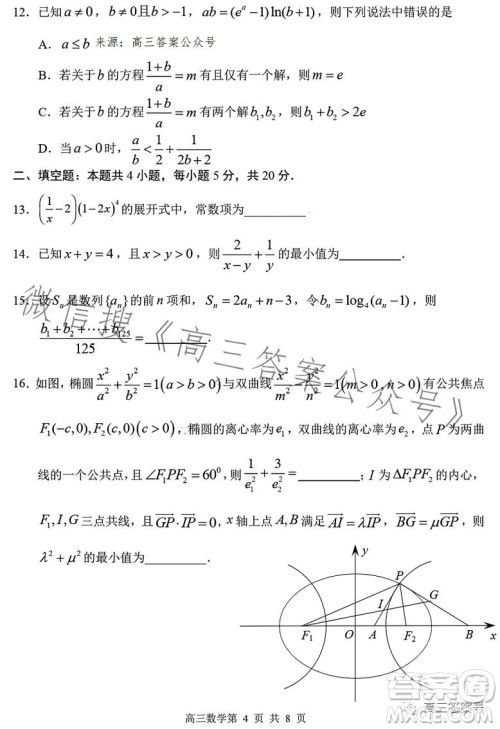 12．已知 a≠0，b≠0且b>-1，ab=(e^a-1)ln(b+1)，则下列说法中错误的是
A．a≤b 来源：高三答案公众号
B．若关于b的方程 (1+b)/a=m 有且仅有一个解，则 m=e
C．若关于b的方程 (1+b)/a=m 有两个解 b₁,b₂，则 b₁+b₂>2e
D．当 a>0 时，a/b<1/2+1/(2b+2)
二、填空题：本题共 4 小题，每小题 5 分，共 20 分．
13．(1/x-2)(1-2x)⁴ 的展开式中，常数项为
14．已知 x+y=4，且 x>y>0，则 2/(x-y)+1/y 的最小值为．
15．设 Sₙ 是数列{aₙ}的前n项和，Sₙ=2aₙ+n-3，令 bₙ=log₄(aₙ-1)，则
(b₁+b₂+⋯+b₁₂₅)/125=．
16．如图，椭圆 x²/a²+y²/b²=1(a>b>0) 与双曲线 x²/m²-y²/n²=1(m>0，n>0) 有公共焦点
F₁(-c,0),F₂(c,0)(c>0)，椭圆的离心率为 e₁，双曲线的离心率为 e₂，点P为两曲
线的一个公共点，且∠F₁PF₂=60⁰，则 1/e₁²+3/e₂²=；I为ΔF₁PF₂的内心，
F₁,I,G三点共线，且 GP·IP=0，x轴上点A,B满足 AI=λIP，BG=μGP，则
λ²+μ²的最小值为．
y
P
G
I
F₁ O A F₂ B x
微信搜《高三答案公众号》
高三答案号
答案圈
高三数学第 4 页 共 8 页